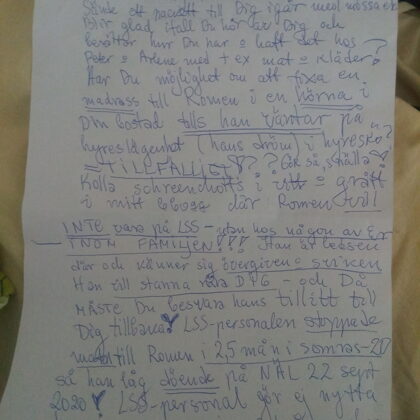 Sände ett till Dig igår med mössa
Blir glad ifall Du hör av Dig och
berättar hur Du har o haft det hos
Peter o Arlene med t ex mat o kläder?
Har Du möjlighet om att fixa en
madrass till Romen i en hörna i
Din bostad tills han väntar på
hyreslägenhet (hans dröm) i hyreskö?
= TILLFÄLLIGT ? Gör så, snälla
Kolla schreenchotts i vitt o grått
i mitt där Romen vill
INTE vara på LSS - utan hos någon av Er
INOM FAMILJEN!!! Han är ledsen
där och känner sig övergiven o sviken
Han till stanna - och Då
MÅSTE Du besvara hans tillitt till
Dig tillbaka! LSS-personalen stoppade
mat till Romen i 2,5 mån i somras-20
så han låg döende på NÄL 22 sept
2020! LSS-personal gör ej nytta